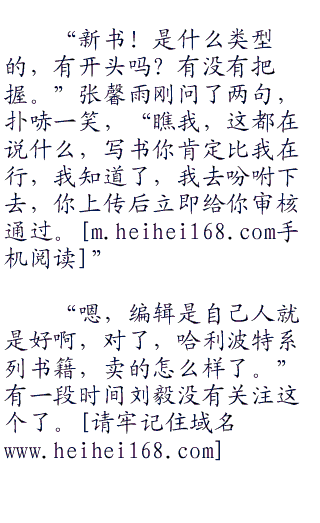 “新书！是什么类型
的，有开头吗？有没有把
握。”张馨雨刚问了两句，
扑哧一笑，“瞧我，这都在
说什么，写书你肯定比我在
行，我知道了，我去吩咐下
去，你上传后立即给你审核
通过。[m.heihei168.com手
机阅读]”
“嗯，编辑是自己人就
是好啊，对了，哈利波特系
列书籍，卖的怎么样了。”
有一段时间刘毅没有关注这
个了。[请牢记住域名
www.heihei168.com]